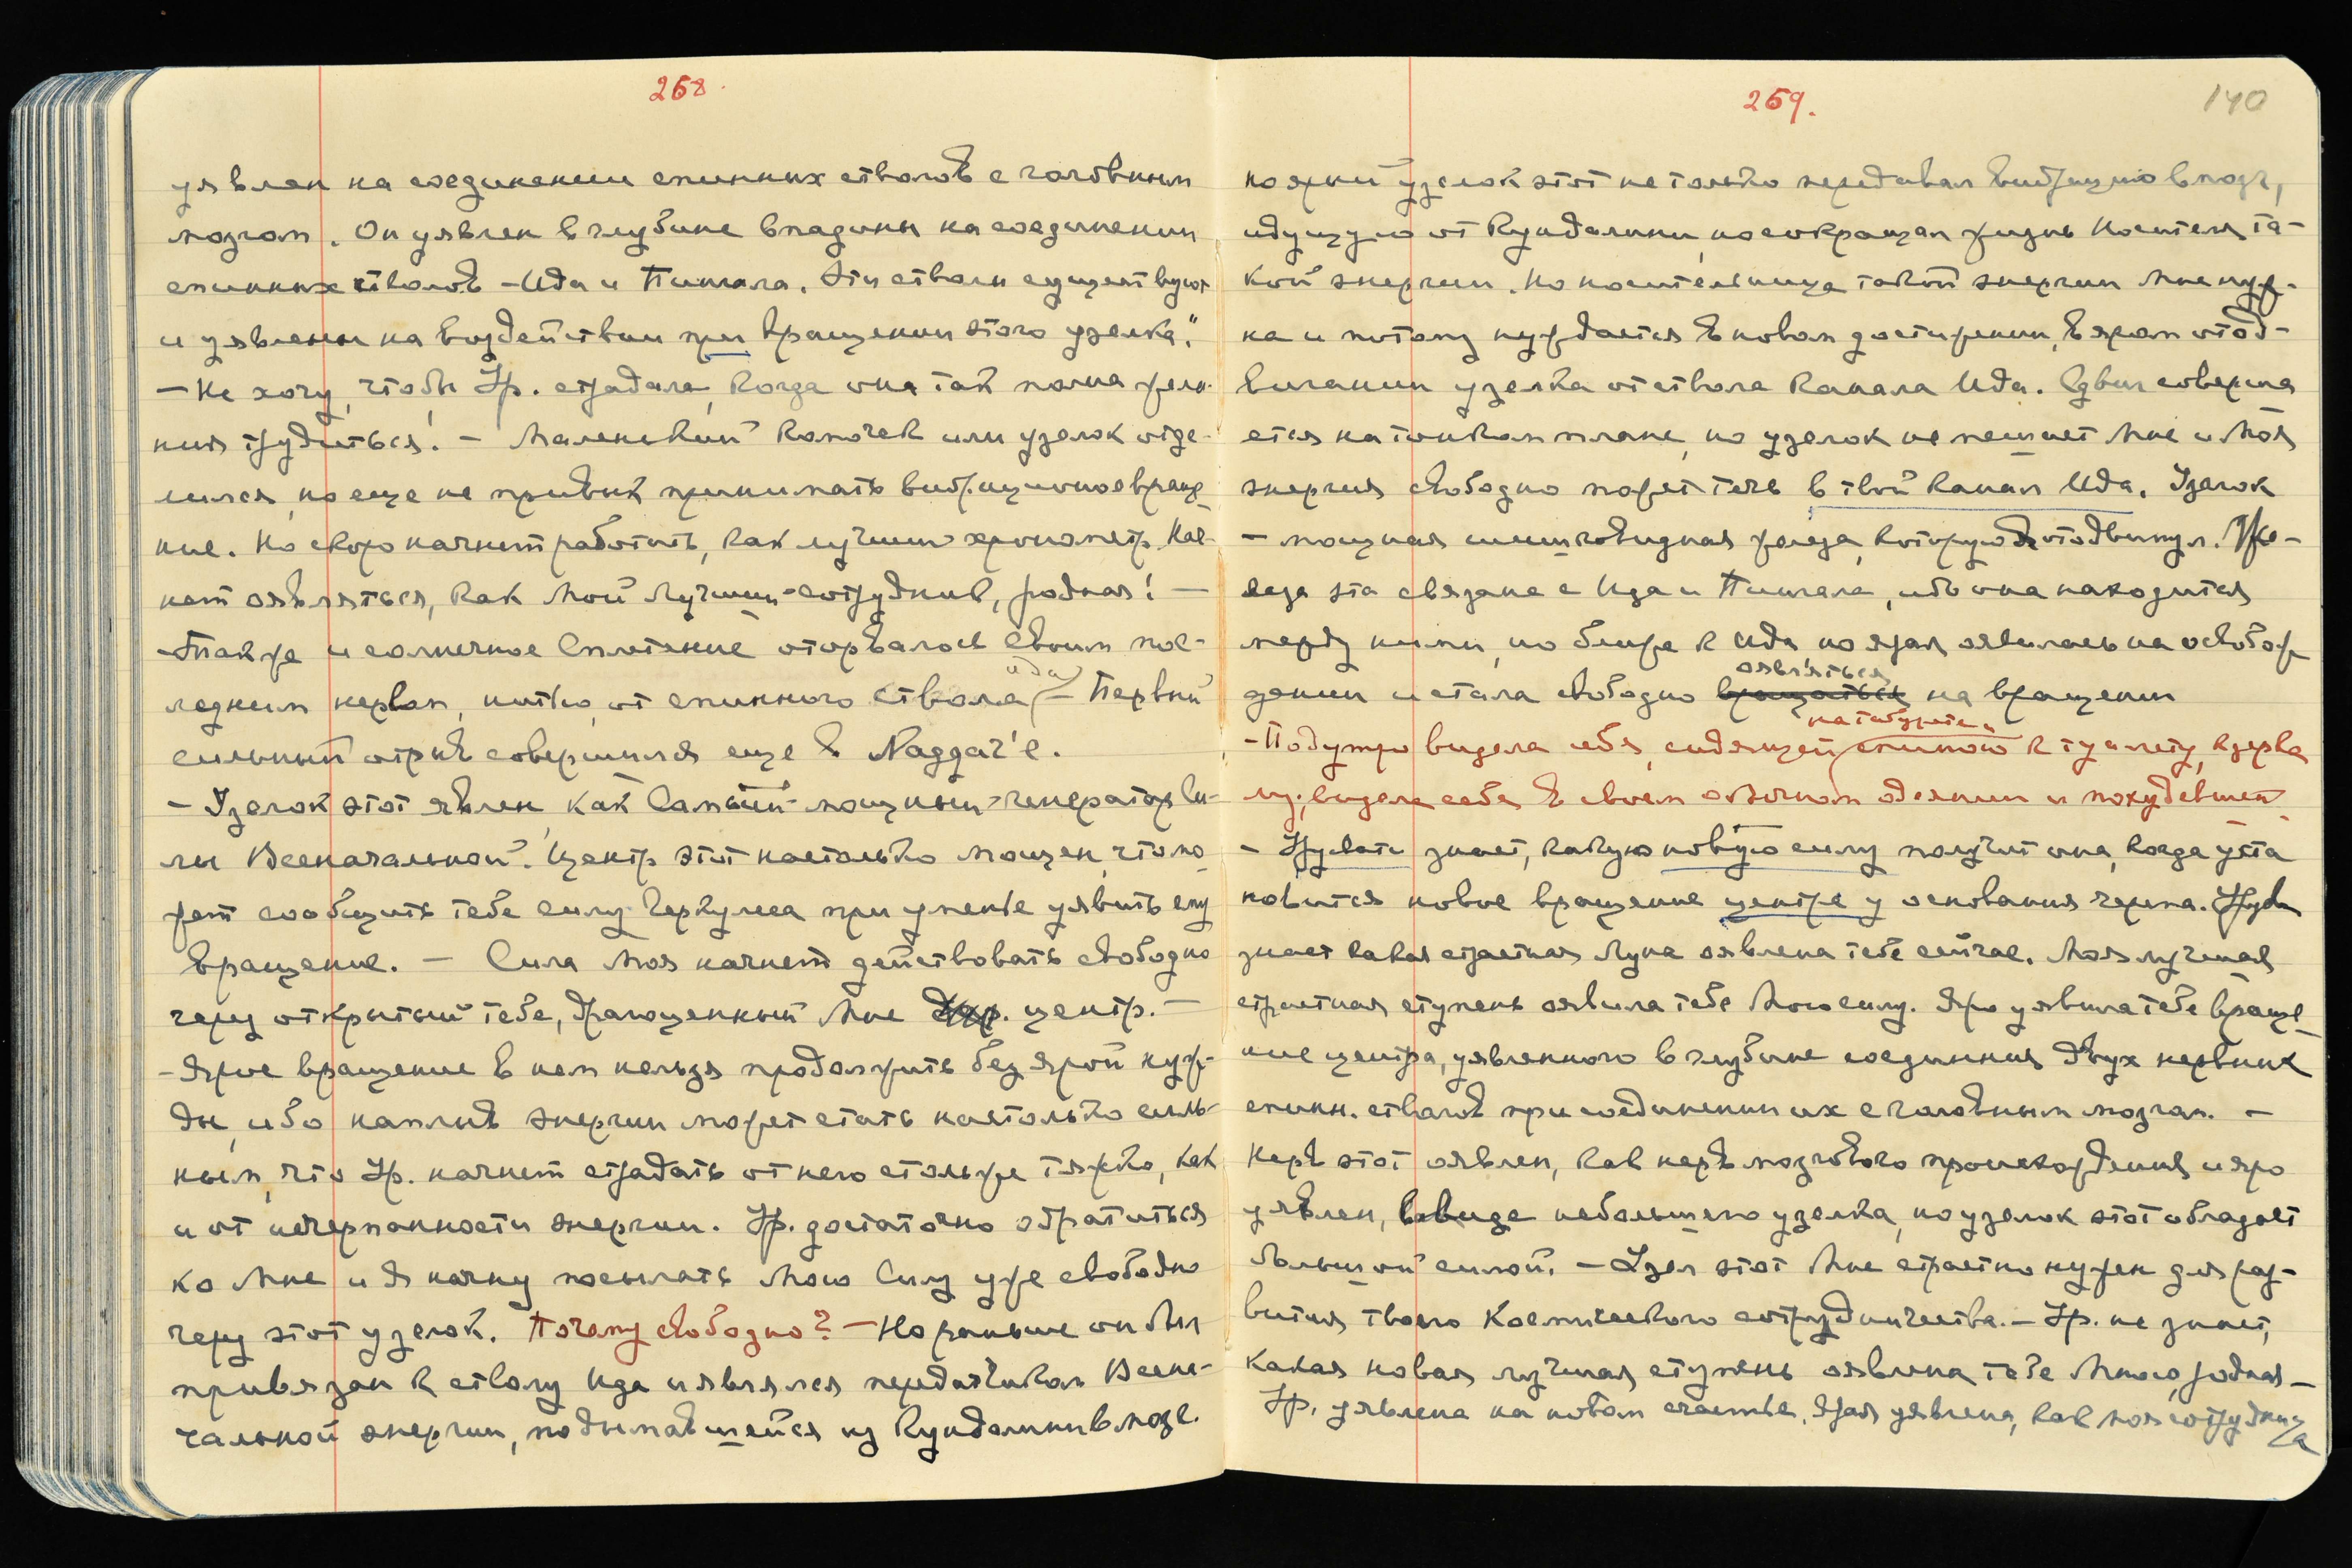 258.
уявлен на соединении спинных стволов с головным
мозгом. Он уявлен в глубине впадины на соединении
спинных стволов – Ида и Пингала. Эти стволы существуют
и уявлены на воздействии при вращении этого узелка."
– Не хочу, чтобы Ур. страдала, когда она так полна жела-
ния трудиться! – Маленький комочек или узелок отде-
лился, но еще не привык принимать вибрационное враще-
ние. Но скоро начнет работать, как лучший хронометр. Нач-
нет оявляться, как Мой Лучший сотрудник, родная! –
– Также и солнечное Сплетение оторвалось своим пос-
ледним нервом, нитью, от спинного ствола Ида – Первый
сильный отрыв совершился еще в Naggar'e.
– Узелок этот явлен как Самый мощный генератор Си-
лы Всеначальной. Центр этот настолько мощен, что мо-
жет сообщить тебе силу Геркулеса при уменье уявить ему
вращение. – Сила Моя начнет действовать свободно
через открытый тебе, драгоценный Мне центр. –
– Ярое вращение в нем нельзя продолжить без ярой нуж-
ды, ибо наплыв энергии может стать настолько силь-
ным, что Ур. начнет страдать от него столь же тяжко, как
и от исчерпанности энергии. Ур. достаточно обратиться
ко Мне и Я начну посылать Мою Силу уже свободно
через этот узелок. Почему свободно? – Но раньше он был
привязан к стволу Ида и являлся передатчиком Всена-
чальной энергии, подымавшейся из Кундалини в мозг.
259.
140
но ярый узелок этот не только передавал вибрацию в мозг,
идущую от Кундалини, но сокращал жизнь Носителя та-
кой энергии. Но носительница такой энергии Мне нуж-
на и потому нуждается в новом достижении, в яром отод-
вигании узелка от ствола Канала Ида. Сдвиг соверша
ется на тонком плане, но узелок не мешает Мне и Моя
энергия свободно может течь в твой Канал Ида. Узелок
– мощная шишковидная железа, которую Я отодвинул. Же-
леза эта связана с Ида и Пингала, ибо она находится
между ними, но ближе к Ида но ярая оявилась на освобож
дении и стала свободно вращаться оявляться на вращении
– Подутро видела себя, сидящей на табурете спиною к туалету, к зерка
лу, видела себя в своем обычном одеянии и похудевшей.
– Урусвати знает, какую новую силу получит она, когда уста
новится новое вращение центра у основания черепа. Урусв
знает какая страстная Луна оявлена тебе сейчас. Моя лучшая
страстная ступень оявила тебе Мою силу. Яро уявила тебе враще
ние центра, уявленного в глубине соединения двух нервных
спинн. стволов при соединении их с головным мозгом. –
Нерв этот оявлен, как нерв мозгового происхождения и яро
уявлен, в виде небольшого узелка, но узелок этот обладает
большой силой. – Узел этот Мне страстно нужен для раз-
вития твоего Космического сотрудничества. – Ур. не знает,
какая новая лучшая ступень оявлена тебе Мною, родная –
Ур. уявлена на новом счастье. Ярая уявлена, как моя сотрудница